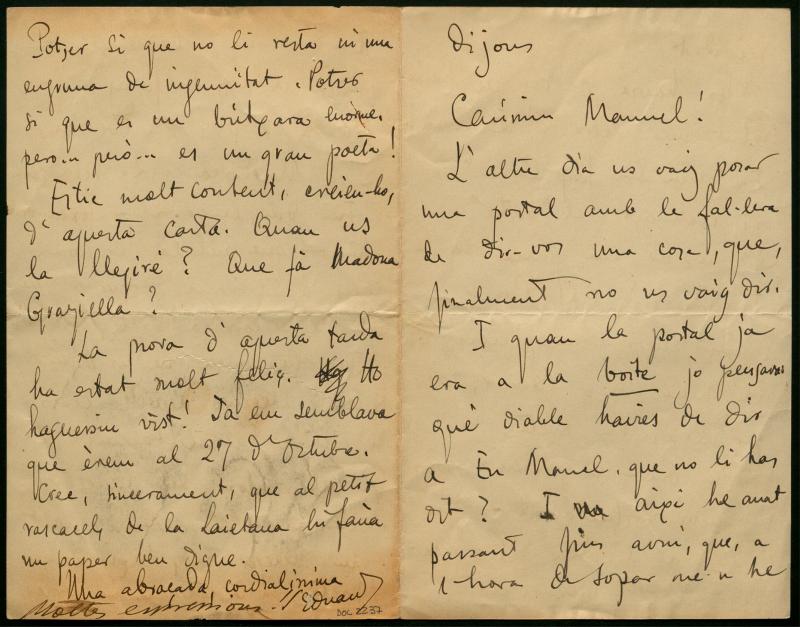 Dijous
Caríssim Manuel!
L'altre dia us vaig posar
una postal amb la fal-lera
de dir-vos una cosa, que,
finalment no us vaig dir.
I quan la postal ja
era a la boîte jo pensava:
què diable havies de dir
a En Manuel, que no li has
dit? I així he anat
passant fins avui, que, a
l'hora de sopar me-n he
Potser si que no li resta ni una
engruna de ingenuitat. Potser
si que es un bútxara enorme.
pero... però... es un gran poeta!
Estic molt content, creieu-ho,
d'aquesta carta. Quan us
la llegiré? Que fà Madona
Graziella?
La prova d'aquesta tarda
ha estat molt feliç. Ho
haguessiu vist! Ja em semblava
que èrem al 27 d'Octubre.
Crec, sincerament, que al petit
rascacels de la Laietana hi faria
un paper ben digne.
Una abraçada cordialissima
Moltes expressions. Eduard
DOC 2237